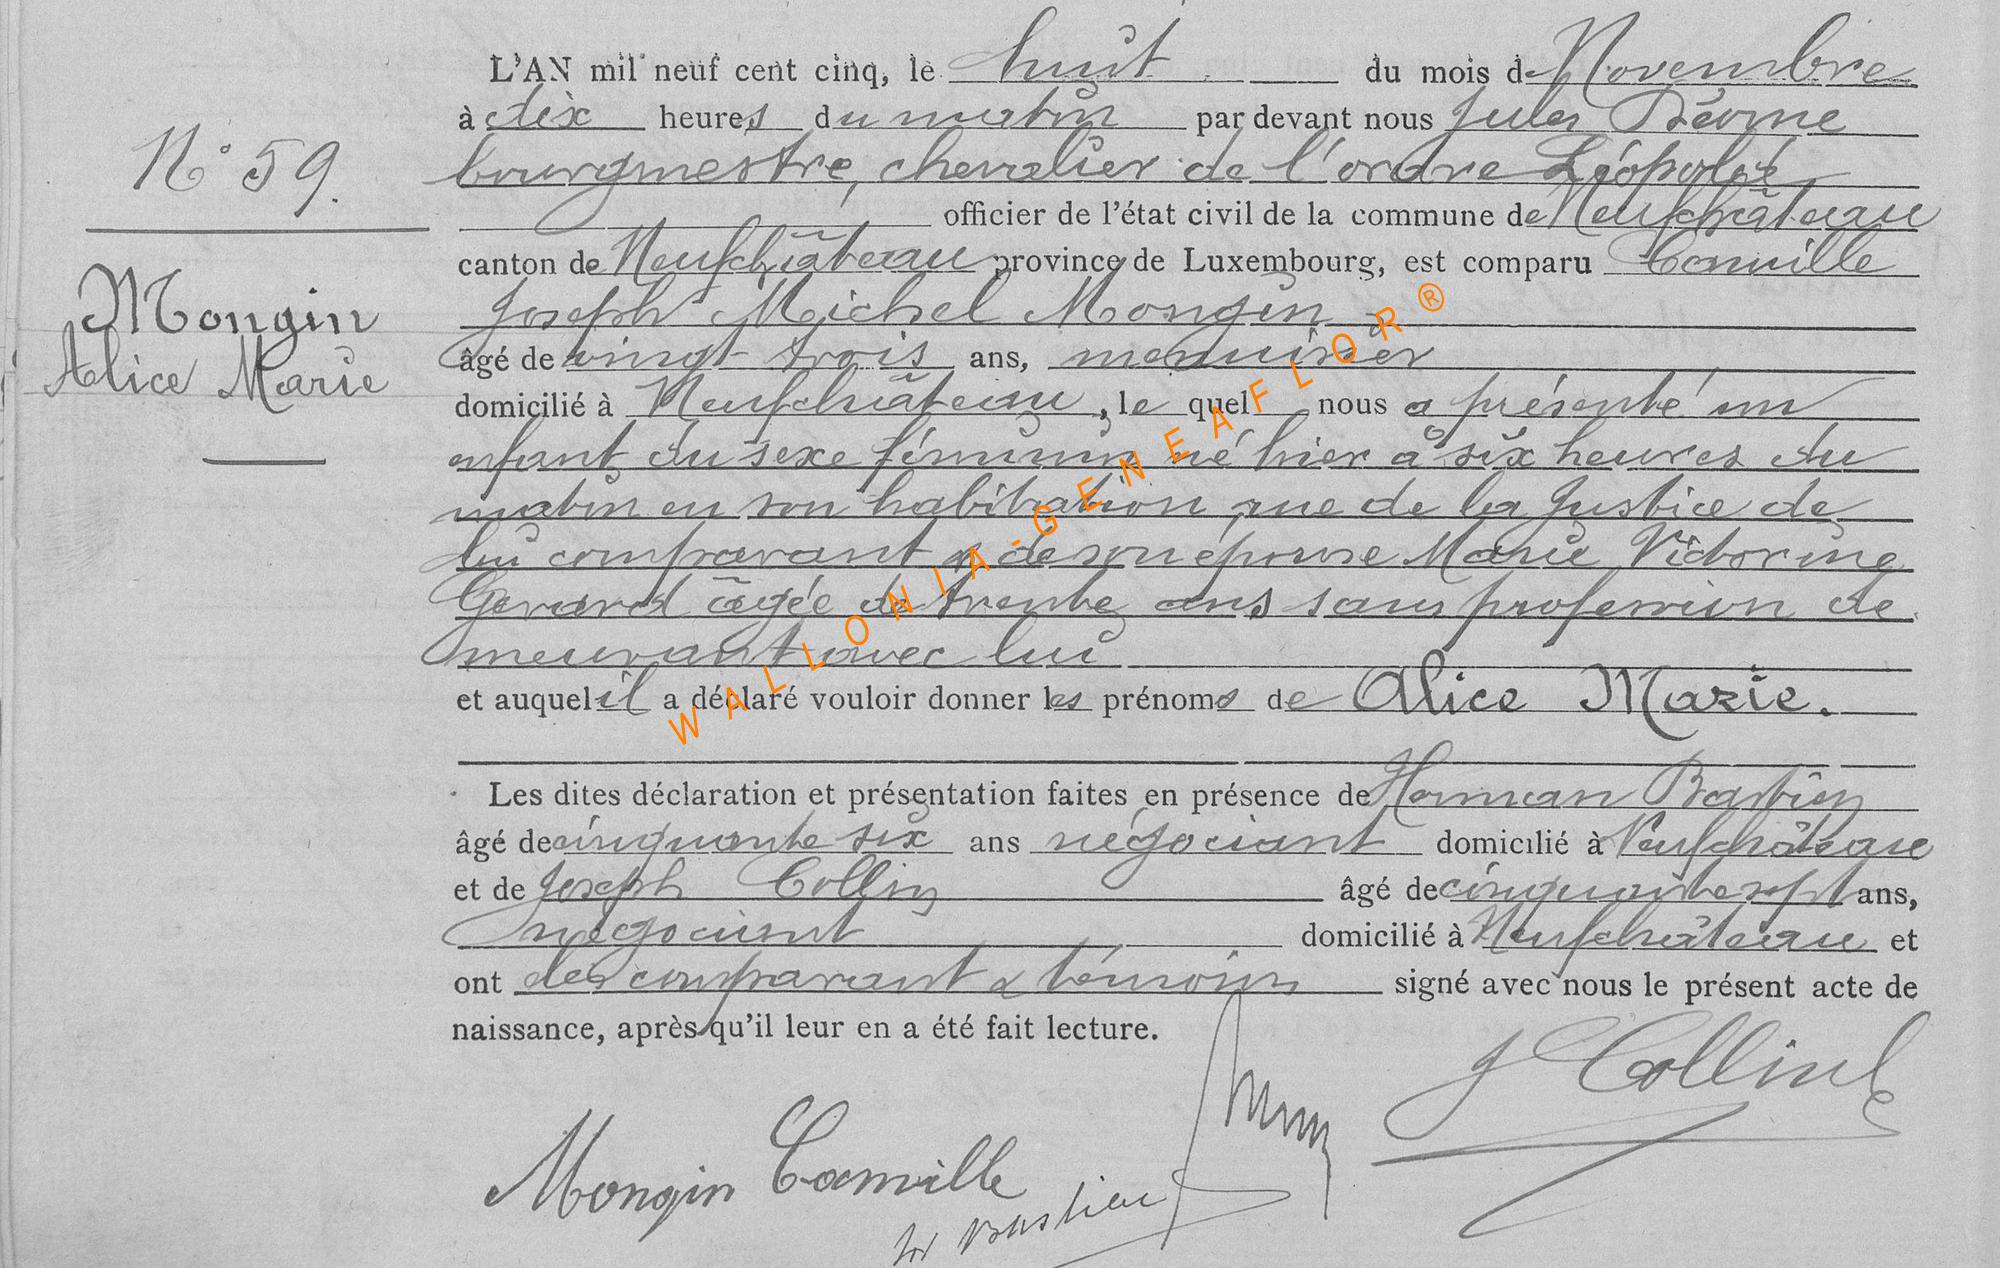 L'AN mil neuf cent cinq, le huit du mois de Novembre
à dix heures du matin par devant nous Jules
bourgmestre, chevalier de l'ordre Léopold
officier de l'état civil de la commune de Neufchâteau
canton de Neufchâteau province de Luxembourg, est comparu Camille
Joseph Michel Mongin
âgé de vingt trois ans, menuisier
domicilié à Neufchâteau, le quel nous a présenté un
enfant du sexe féminin né hier à six heures du
matin en son habitation rue de la Justice de
lui comparant & de son épouse Marie Victorine
Gerard âgée de trente ans sans profession de
meurant avec lui
et auquel il a déclaré vouloir donner les prénoms de Alice Marie.
Les dites déclaration et présentation faites en présence de Herman Bastien
âgé de cinquante six ans négociant domicilié à Neufchâteau
et de Joseph Collin âgé de cinquante sept ans,
négociant domicilié à Neufchâteau et
ont les comparant & témoins signé avec nous le présent acte de
naissance, après qu'il leur en a été fait lecture.
N° 59.
Mongin
Alice Marie
J Collin
Mongin Camille
Bastien
WALLONIA-GENEAFLOR®